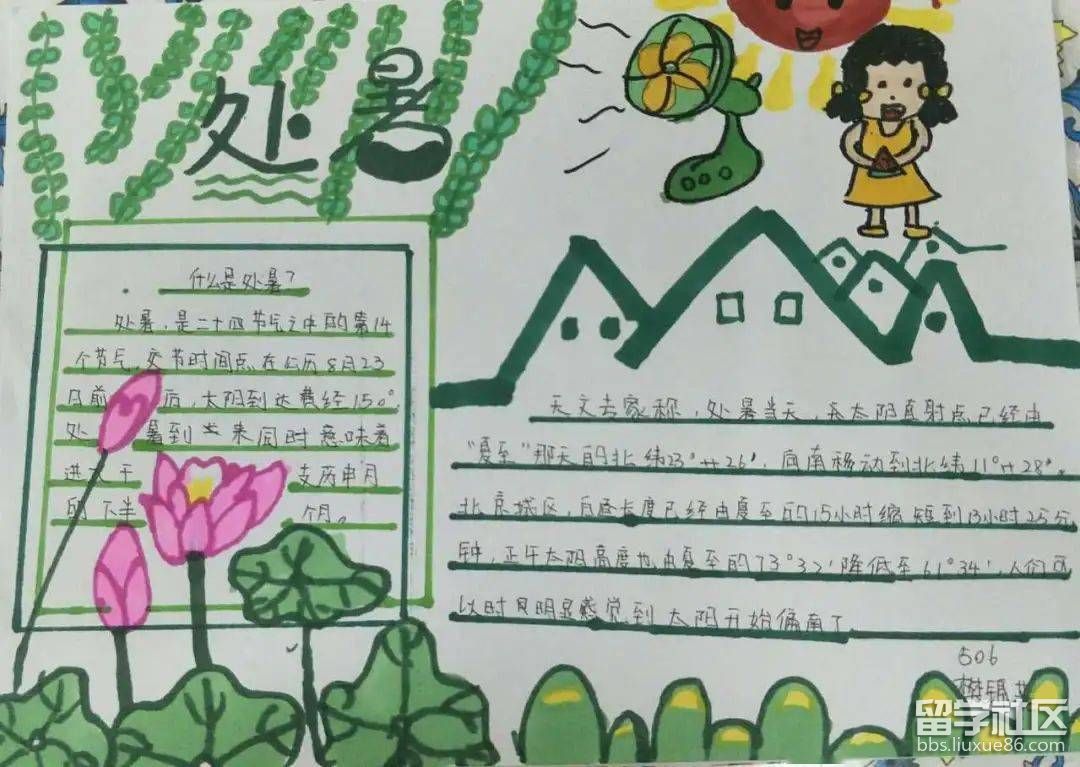 处暑
什么是处暑？
处暑，是二十四节气之中的第14
个节气，交节时间点在公历8月23
日前后，太阳到达黄经150°.
处暑到来同时意味着
进入干支丙申月
的下半个月。
天文专家称，处暑当天，太阳直射点已经由
"夏至"那天的北纬23°26'，向南移动到北纬11°28'。
北京城区，白昼长度已经由夏至的15小时缩短到13小时25分
钟，正午太阳高度也由夏至的73°32'降低至61°34'，人们可
以时明显感觉到太阳开始偏南了
506
留学社区
bbs.liuxue86.com